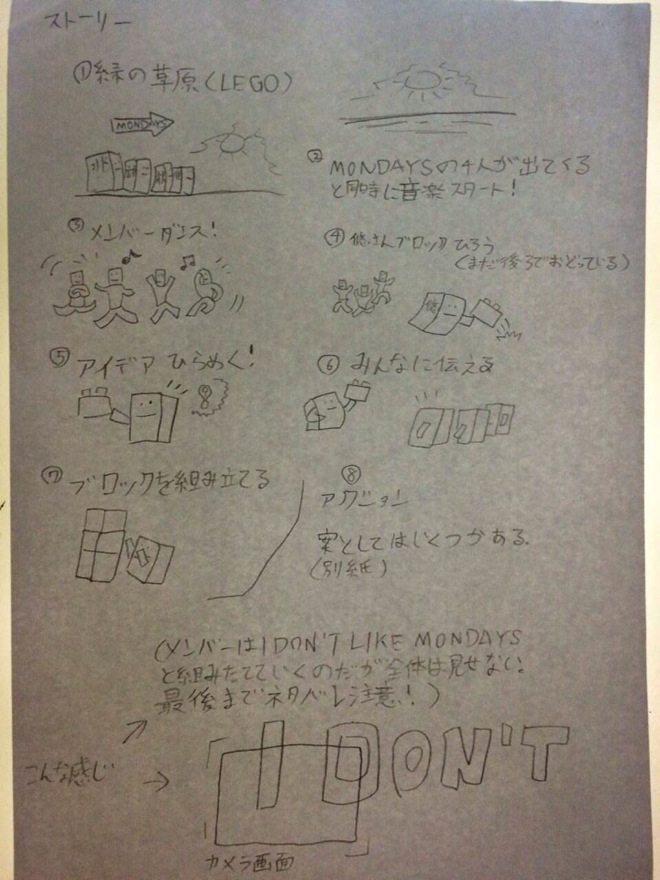 ストーリー
①緑の草原(LEGO)
MONDAYS
② MONDAYSの4人が出てくる
と同時に音楽スタート!
③メンバーダンス!
④悠さんブロックひろう
(まだ後ろでおどっている)
悠
⑤アイデアひらめく!
⑥みんなに伝える
⑦ブロックを組み立てる
⑧
アクション
案としてはいくつかある。
(別紙)
(メンバーはI DON'T LIKE MONDAYS
と組みたてていくのだが全体は見せない。
最後までネタバレ注意!)
こんな感じ
I DON'T
カメラ画面